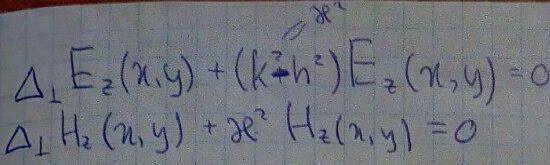 æ²
Δ⊥ E_z(x,y) + (k²-h²) E_z(x,y) = 0
Δ⊥ H_z(x,y) + æ² H_z(x,y) = 0